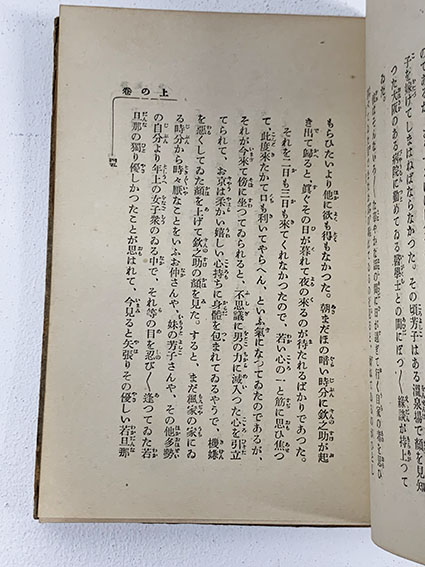 子を嫁げてしまはねばならなかつた。その頃芳子はある温泉場で顔を見知
つた大阪のある病院に勤めてゐる醫學士との間にぼつ〳〵縁談が持上つて
ゐた。
もらひたいより他に欲も得もなかつた。朝まだほの暗い時分に欽之助が起
き出て歸ると、直ぐその日が暮れて夜の來るのが待たれるばかりであつた。
それを二日も三日も來てくれなかつたので、若い心の一と筋に思ひ焦つ
て、此度來たかて口も利いてやらへん、といふ氣になつてゐたのであるが、
それが今來て傍に坐つてゐられると、不思議に男の力に滅入つた心を引立
てられて、お京は柔かい嬉しい心持ちに身體を包まれてゐるやうで、機嫌
を惡くしてゐた顏を上げて欽之助の顏を見た。すると、まだ楓家の家にゐ
る時分から時々厭なことをいふお仲さんや、妹の芳子さんや、その他多勢
の自分より年上の女子衆のゐる中で、それ等の目を忍び〳〵逢つてゐた若
旦那の獨り優しかつたことが思はれて、今見ると矢張りその優しい若旦那
上の卷